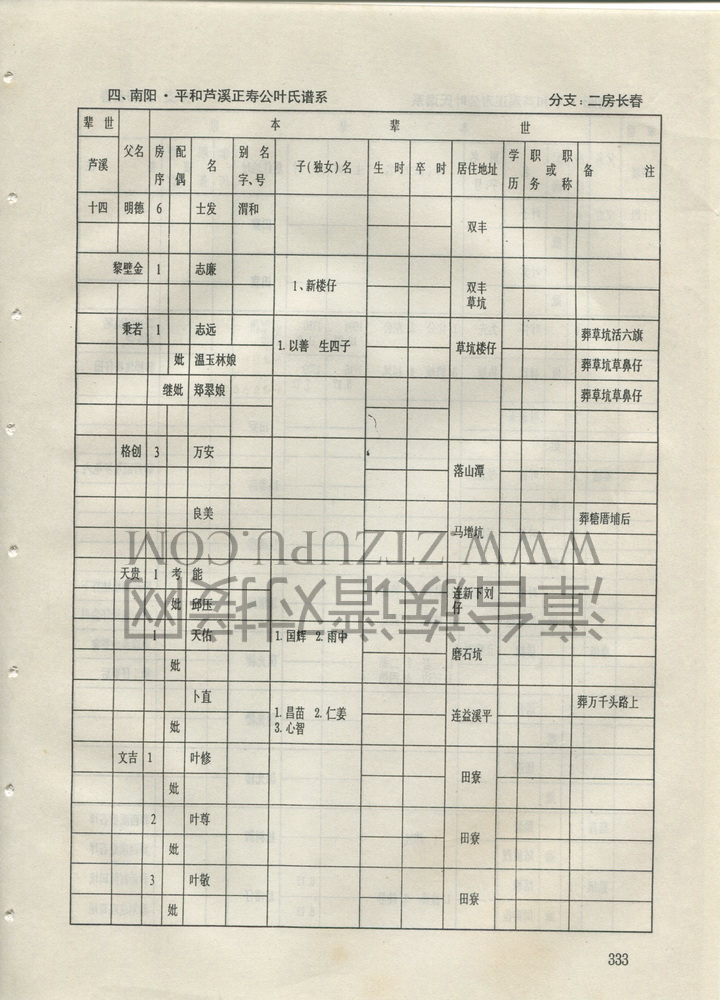 四、南阳·平和芦溪正寿公叶氏谱系 分支:二房长春
辈世 本辈世
芦溪 父名 房序 配偶 名 别名字、号 子(独女)名 生时 卒时 居住地址 学历 职务或职称 备注
十四 明德 6 士发 渭和 双丰
黎壁金 1 志廉 1、新楼仔 双丰草坑
秉若 1 志远 1.以善 生四子 草坑楼仔 葬草坑活六旗
妣 温玉林娘 葬草坑草鼻仔
继妣 郑翠娘 葬草坑草鼻仔
格创 3 万安 落山潭
良美 马增坑 葬糖厝埔后
天贵 1 考 能 连新下刘仔
妣 邱压
1 天佑 1.国辉 2.雨中 磨石坑
妣
卜直 1.昌苗 2.仁姜 3.心智 连益溪平 葬万千头路上
妣
文吉 1 叶修 田寮
妣
2 叶尊 田寮
妣
3 叶敬 田寮
妣
333
WWW.ZTZUPU.COM
漳台族谱对接网